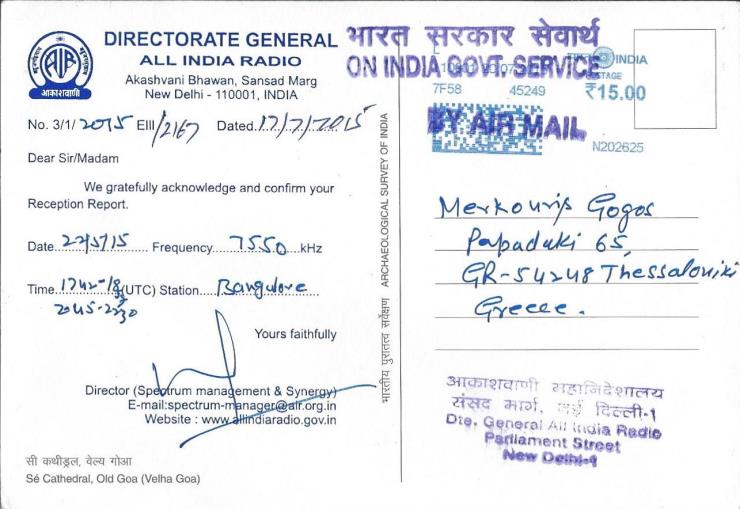 DIRECTORATE GENERAL
ALL INDIA RADIO
Akashvani Bhawan, Sansad Marg
New Delhi - 110001, INDIA
AIR
आकाशवाणी
No. 3/1/2015 EIII/2167 Dated 17/7/2015
Dear Sir/Madam
We gratefully acknowledge and confirm your
Reception Report.
Date 22/5/15 Frequency 7550 kHz
Time 1742-18 (UTC) Station Bangalore
2045-2230
Yours faithfully
Director (Spectrum management & Synergy)
E-mail:spectrum-manager@air.org.in
Website : www.allindiaradio.gov.in
सी कथीड्रल, वेल्य गोआ
Sé Cathedral, Old Goa (Velha Goa)
भारतीय पुरातत्व सर्वेक्षण ARCHAEOLOGICAL SURVEY OF INDIA
भारत सरकार सेवार्थ
ON INDIA GOVT SERVICE
INDIA
POSTAGE
7F58 45249
₹15.00
BY AIR MAIL
N202625
Merkouris Gogos
Papadaki 65,
GR-54248 Thessaloniki
Greece.
आकाशवाणी महानिदेशालय
संसद मार्ग, नई दिल्ली-1
Dte. General All India Radio
Parliament Street
New Delhi-1